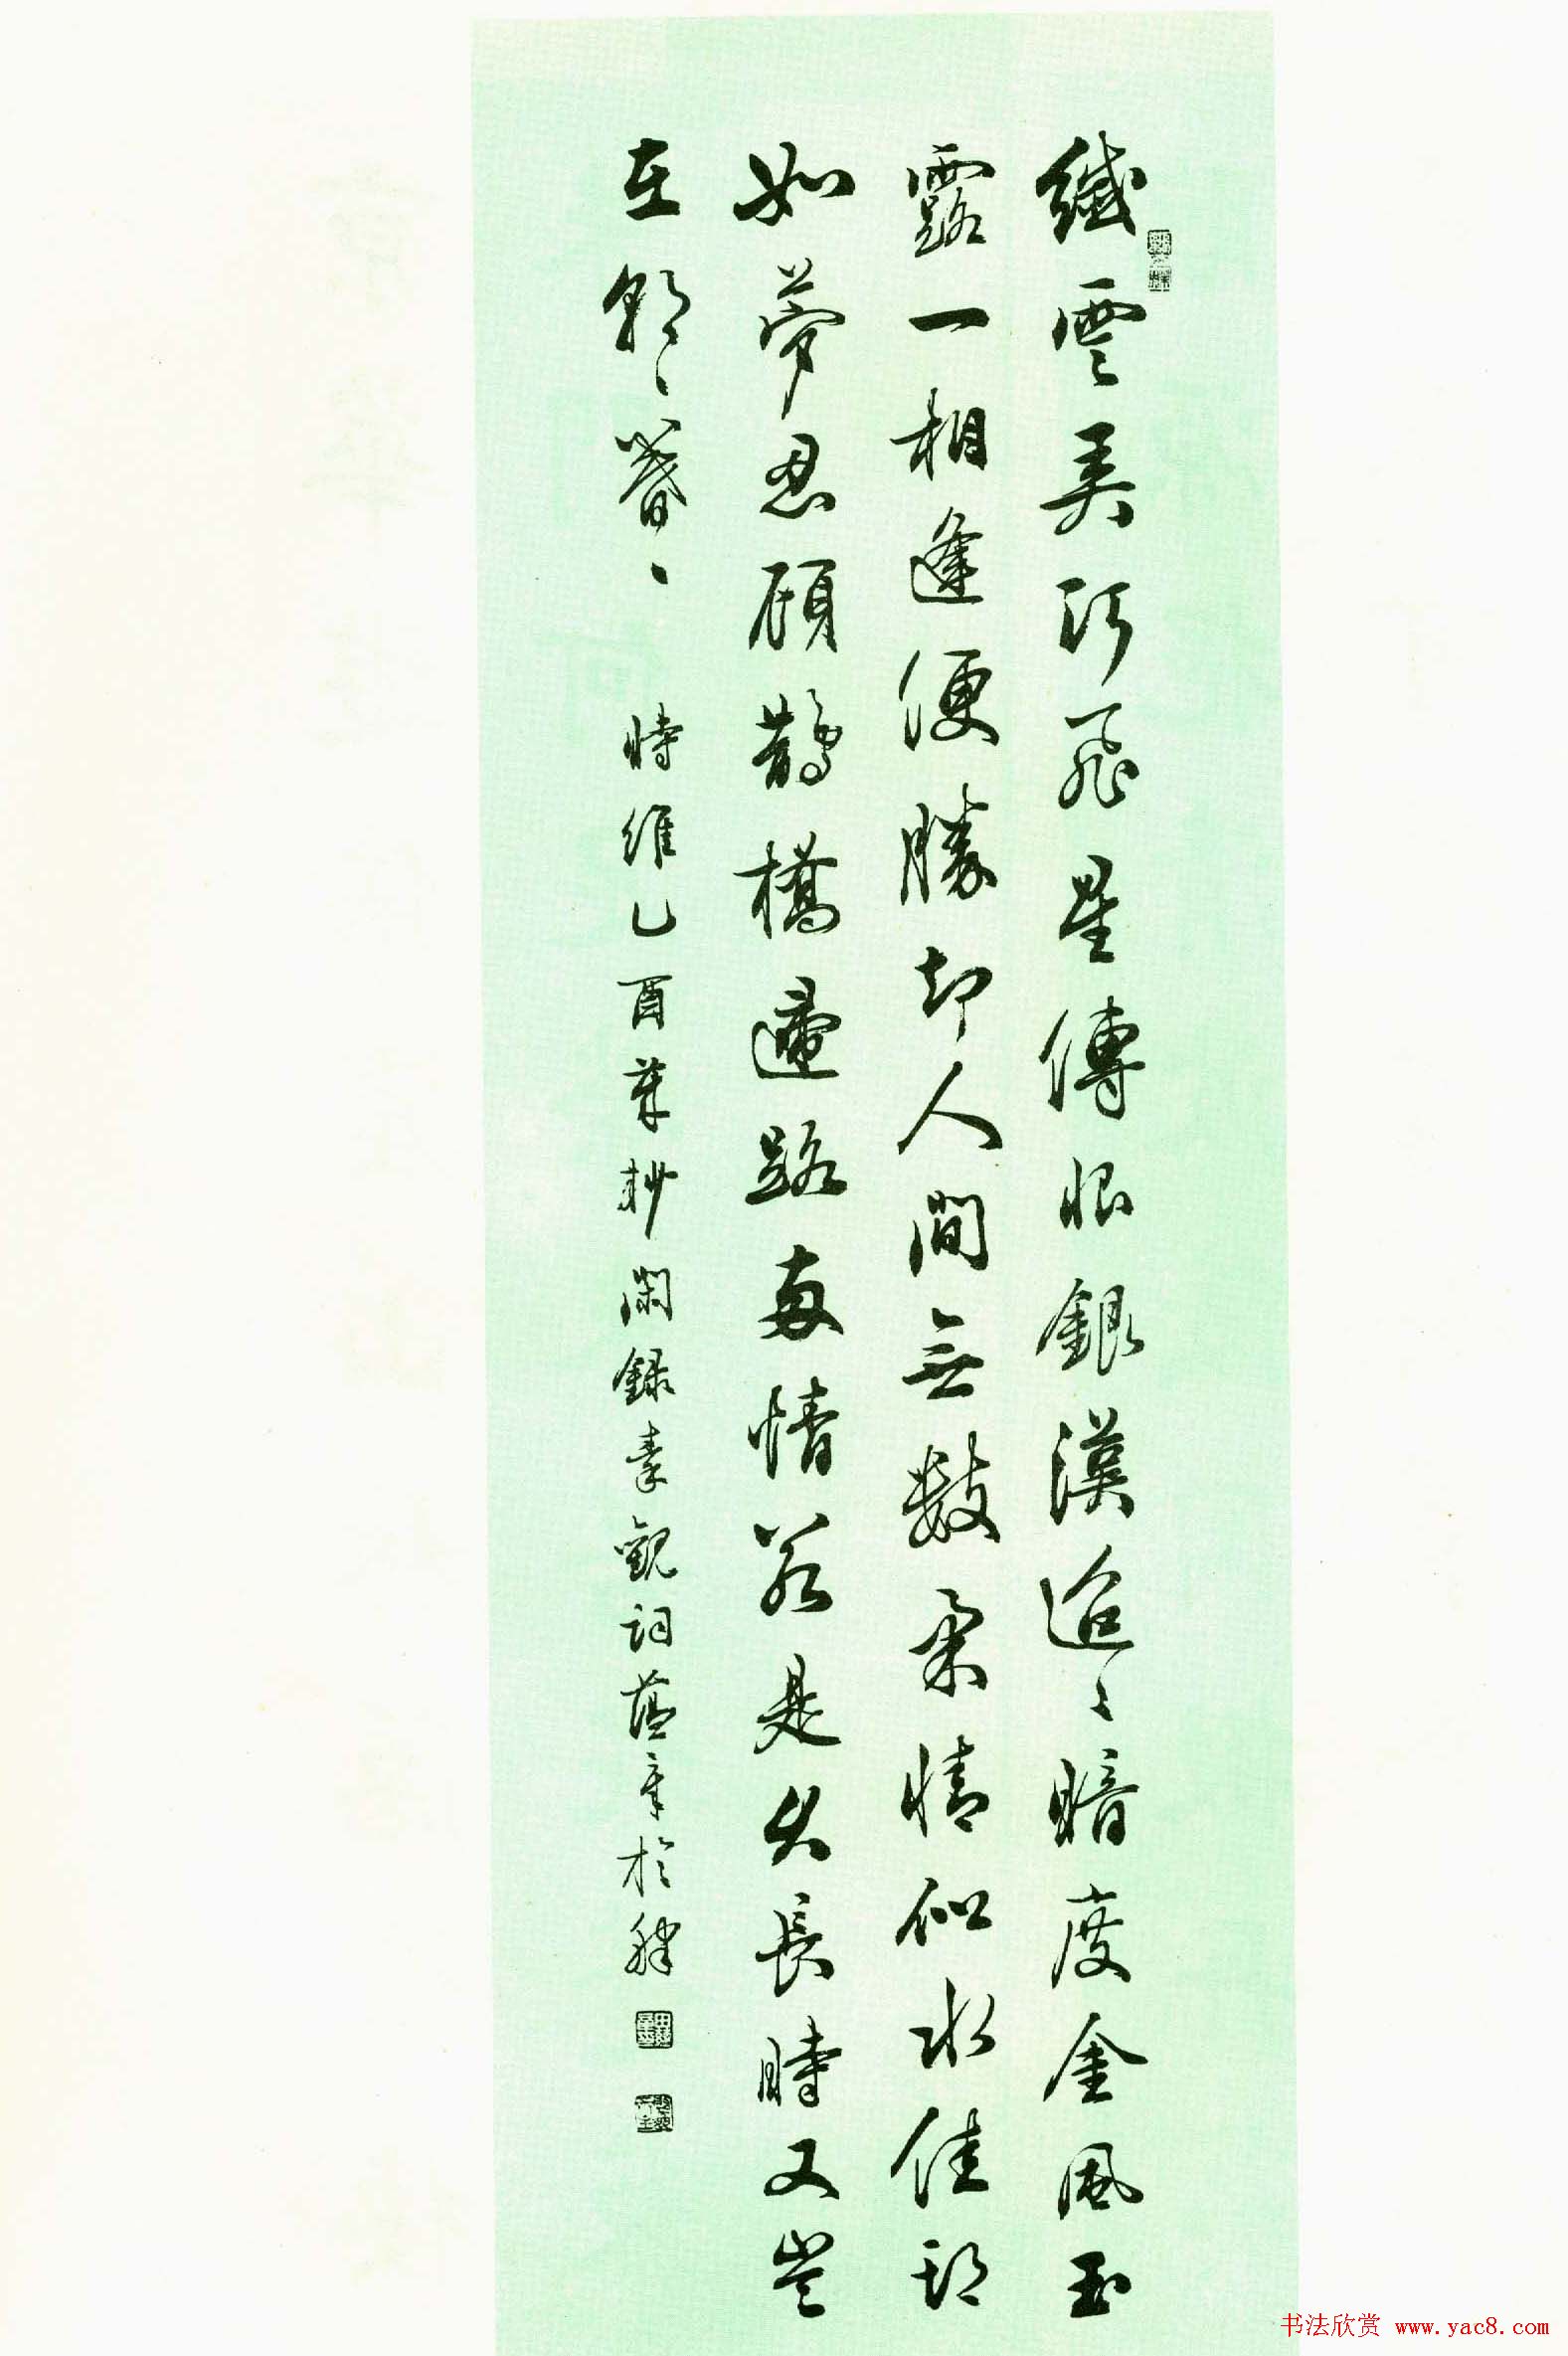 纖雲弄巧飛星傳恨銀漢迢〻暗度金風玉
露一相逢便勝却人間無數柔情似水佳期
如夢忍顧鵲橋歸路兩情若是久長時又豈
在朝〻暮〻 時維乙酉杪閑錄秦觀詞章於
书法欣赏 www.yac8.com